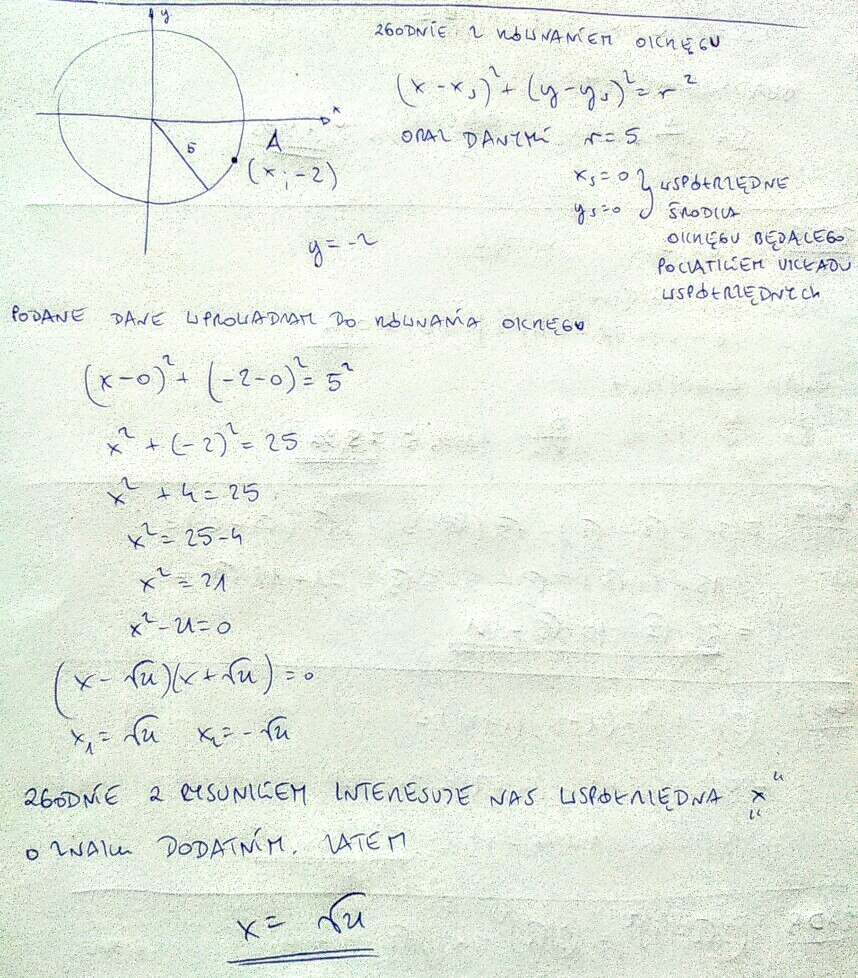 y
x
5
A
(x; -2)
y = -2
ZGODNIE Z RÓWNANIEM OKRĘGU
(x - xₛ)² + (y - yₛ)² = r²
ORAZ DANYMI r = 5
xₛ = 0 } WSPÓŁRZĘDNE
yₛ = 0 ŚRODKA
OKRĘGU BĘDĄCEGO
POCZĄTKIEM UKŁADU
WSPÓŁRZĘDNYCH
PODANE DANE WPROWADZAM DO RÓWNANIA OKRĘGU
(x - 0)² + (-2 - 0)² = 5²
x² + (-2)² = 25
x² + 4 = 25
x² = 25 - 4
x² = 21
x² - 21 = 0
(x - √21)(x + √21) = 0
x₁ = √21 x₂ = -√21
ZGODNIE Z RYSUNKIEM INTERESUJE NAS WSPÓŁRZĘDNA „x"
O ZNAKU DODATNIM. ZATEM
x = √21